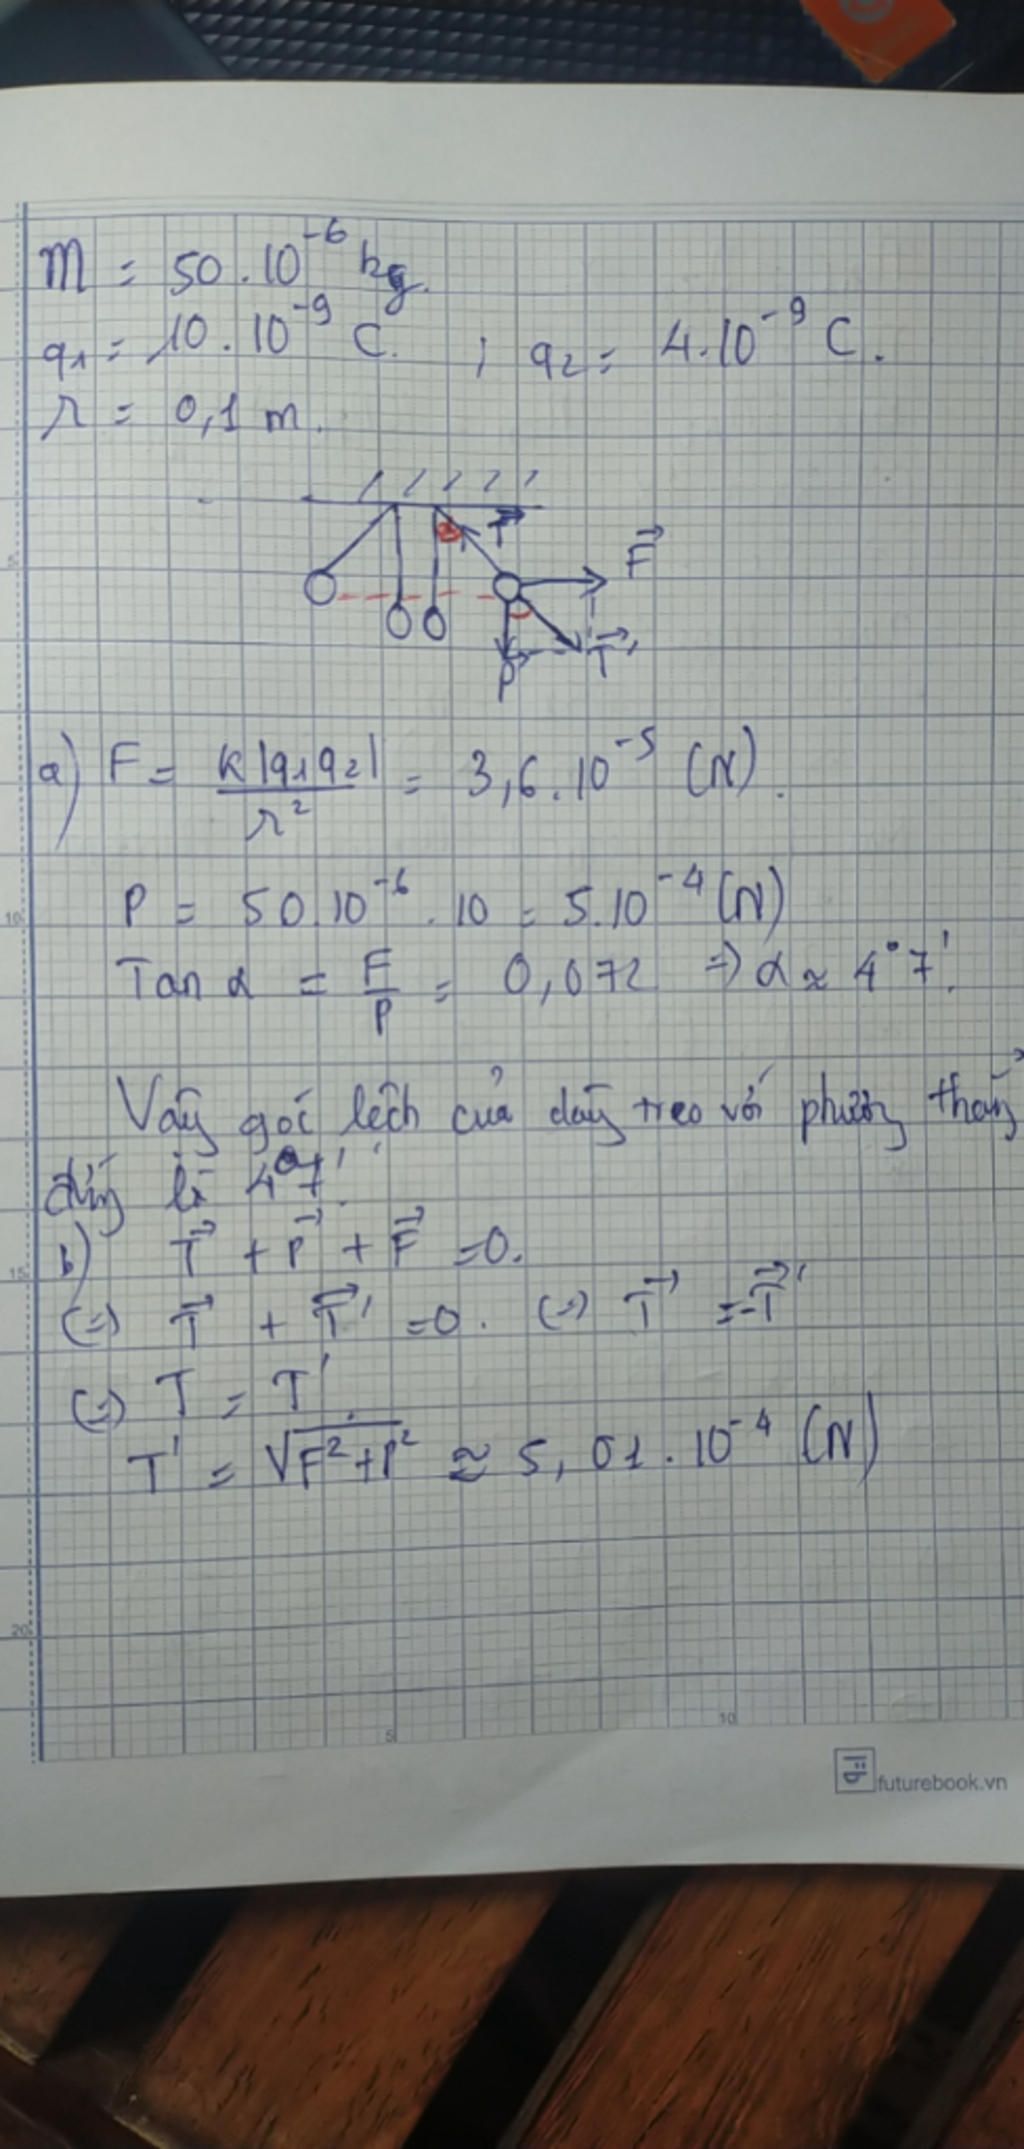 m = 50.10⁻⁶ kg.
q₁ = 10.10⁻⁹ C. ; q₂ = 4.10⁻⁹ C.
r = 0,1 m.
T⃗
F⃗
P⃗
T⃗'
a) F = k|q₁q₂| / r² = 3,6.10⁻⁵ (N).
P = 50.10⁻⁶.10 = 5.10⁻⁴ (N)
Tan α = F/P = 0,072 => α ≈ 4°7'.
Vậy góc lệch của dây treo với phương thẳng
đứng là 4°7'.
b) T⃗ + P⃗ + F⃗ = 0.
(=) T⃗ + T⃗' = 0. (=) T⃗ = -T⃗'
(=) T = T'
T' = √F²+P² ≈ 5,01.10⁻⁴ (N)
5
10
15
20
5
10
futurebook.vn